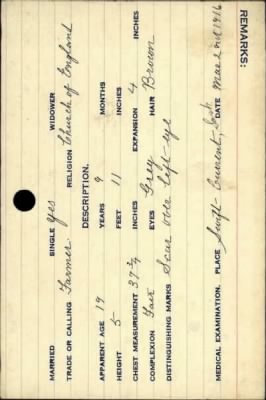 MARRIED SINGLE Yes WIDOWER
TRADE OR CALLING Farmer. RELIGION Church of England
DESCRIPTION.
APPARENT AGE 19 YEARS 9 MONTHS
HEIGHT 5 FEET 11 INCHES
CHEST MEASUREMENT 37¾ INCHES EXPANSION 4 INCHES
COMPLEXION Fair EYES Grey HAIR Brown
DISTINGUISHING MARKS Scar over left eye
MEDICAL EXAMINATION. PLACE Swift Current, Sask DATE Mar 2nd 1916
REMARKS: